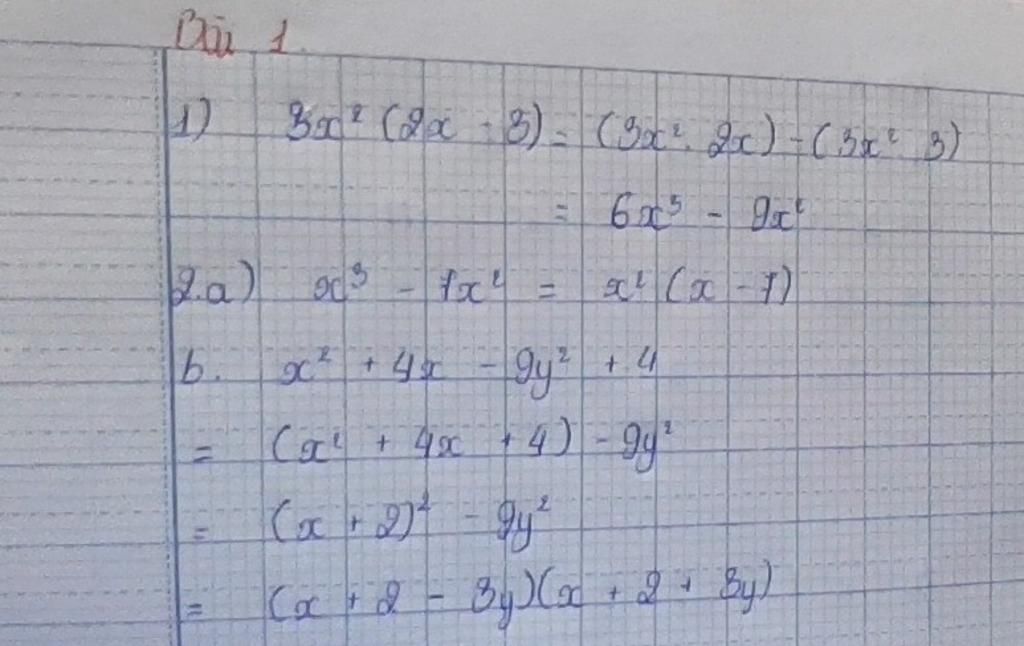 Bài 1.
1) 3x² (2x - 3) = (3x² . 2x) - (3x² . 3)
= 6x³ - 9x²
2.a) x³ - 7x² = x² (x - 7)
b. x² + 4x - 9y² + 4
= (x² + 4x + 4) - 9y²
= (x + 2)² - 9y²
= (x + 2 - 3y)(x + 2 + 3y)